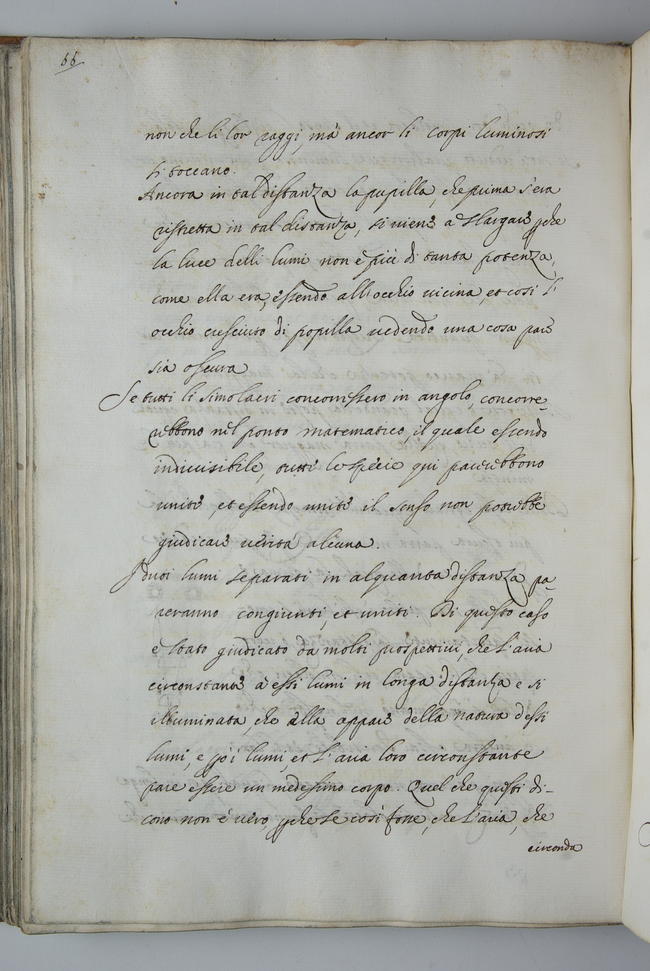 66
non che li lor raggi, mà ancor li corpi luminosi
si toccano.
Ancora in tal distanza la pupilla, che prima s'era
ristretta in tal distanza, si viene a slargare pche
la luce delli lumi non è più di tanta potenza,
come ella era, essendo all'occhio vicina, et così l'
occhio cresciuto di popilla vedendo una cosa pare
sia oscura
Se tutti li simolacri concorressero in angolo, concorre-
rebbono nel ponto matematico, il quale essendo
indivisibile, tutti le specie qui parerebbono
unite, et essendo unite il senso non potrebbe
giudicare verità alcuna.
I duoi lumi separati in alquanta distanza, pa-
reranno congiunti, et uniti. Di questo caso
è stato giudicato da molti prospettivi, che l'aria
circonstante à essi lumi in longa distanza e si
illuminata, che ella appare della natura d'essi
lumi, e pò i lumi, et l'aria loro circonstante
pare essere un medesimo corpo. Quel che questi di-
cono non è vero, pche se così fosse, che l'aria, che
circonda